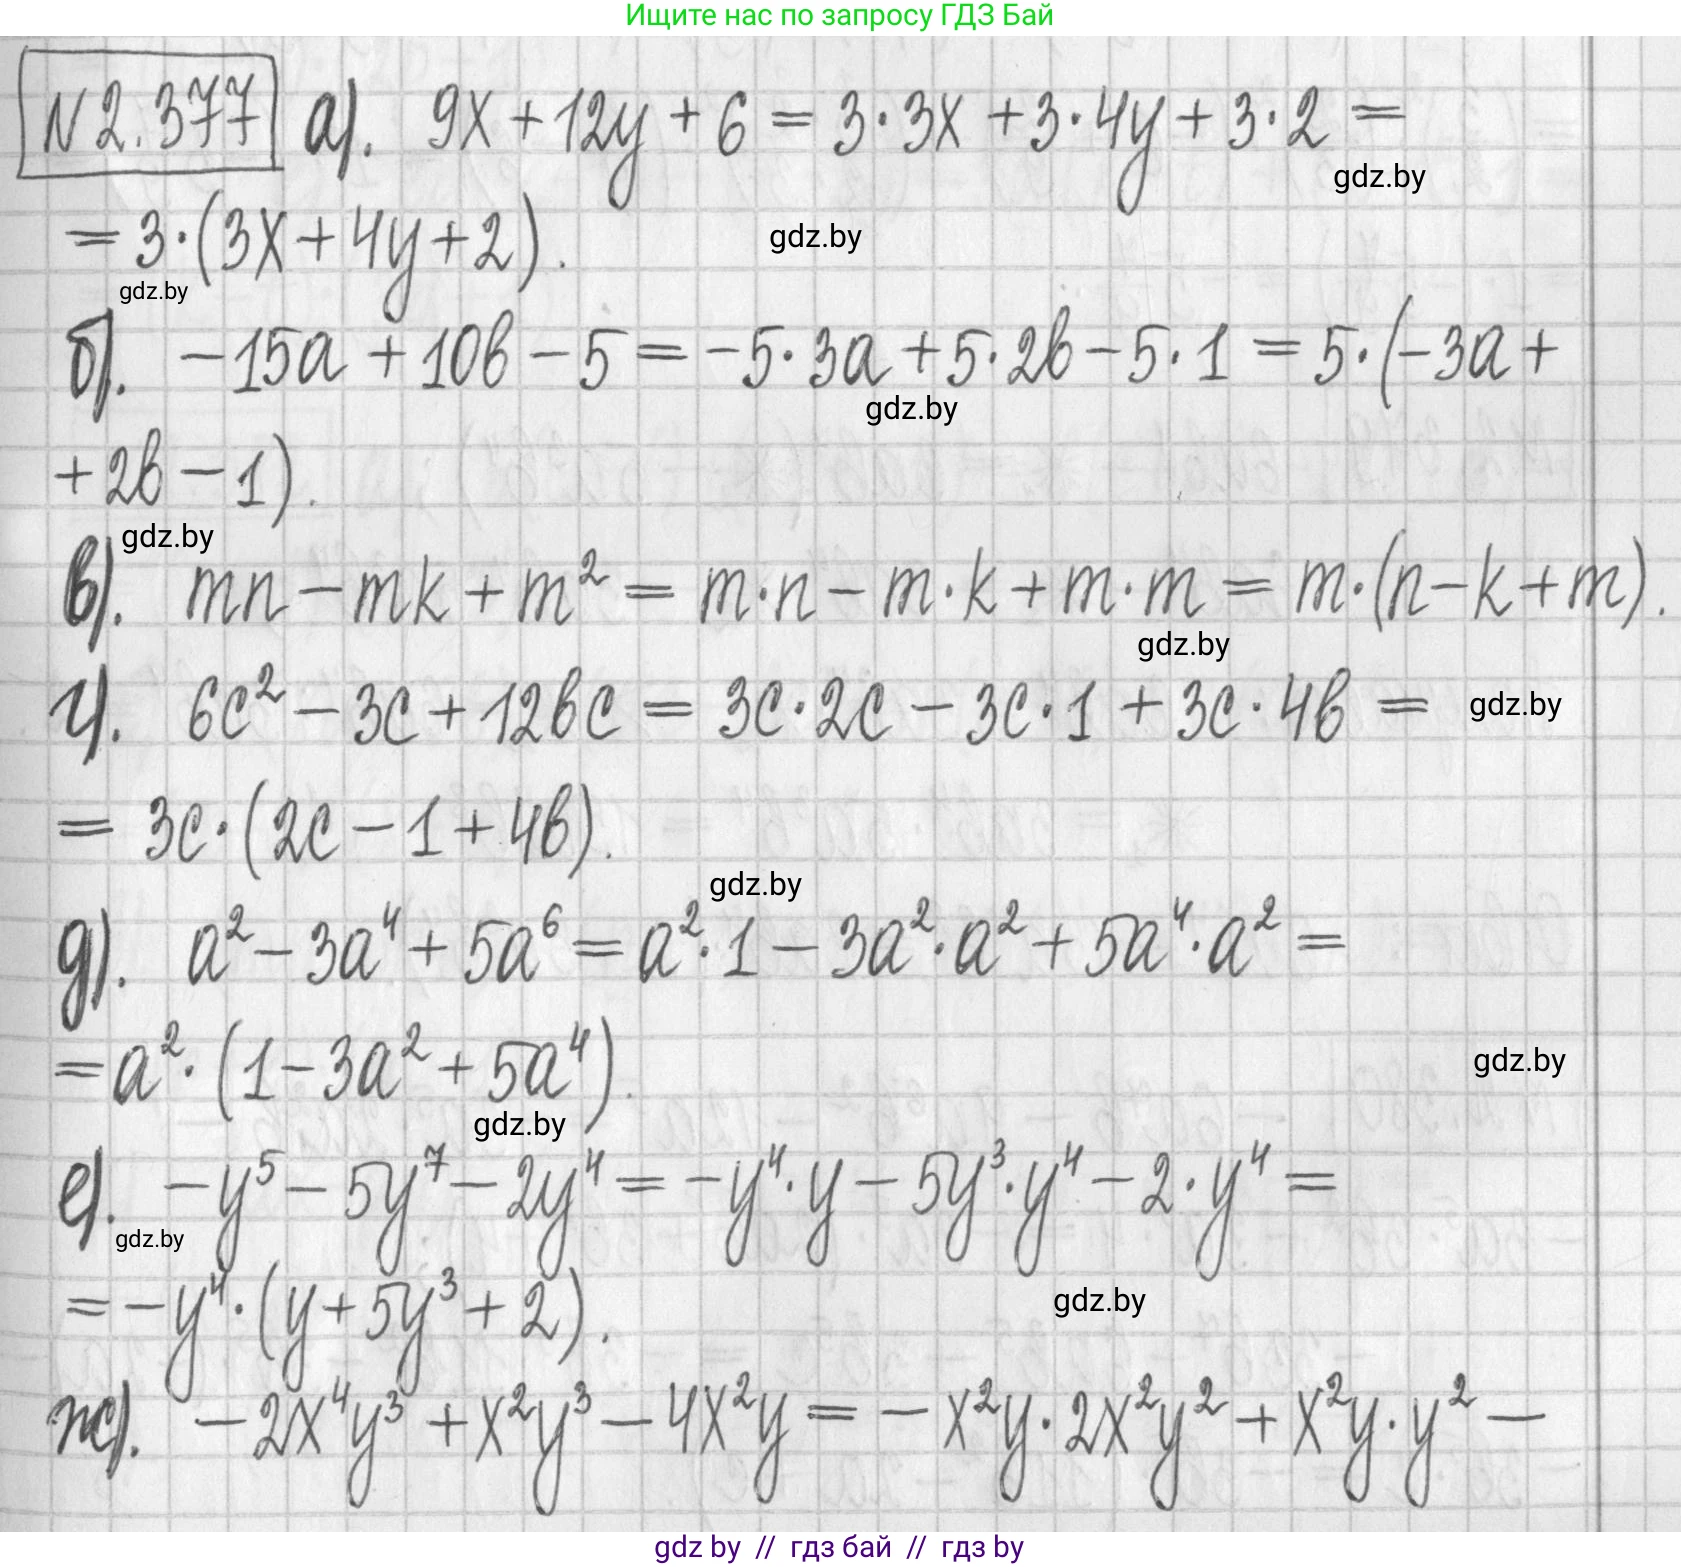 Ищите нас по запросу ГДЗ Бай
N 2.377 а). 9x + 12y + 6 = 3·3x + 3·4y + 3·2 =
gdz.by
= 3·(3x + 4y + 2).
gdz.by
gdz.by
б). -15a + 10b - 5 = -5·3a + 5·2b - 5·1 = 5·(-3a +
gdz.by
+ 2b - 1).
gdz.by
в). mn - mk + m² = m·n - m·k + m·m = m·(n - k + m).
gdz.by
г). 6c² - 3c + 12bc = 3c·2c - 3c·1 + 3c·4b =
gdz.by
= 3c·(2c - 1 + 4b).
gdz.by
д). a² - 3a⁴ + 5a⁶ = a²·1 - 3a²·a² + 5a⁴·a² =
= a²·(1 - 3a² + 5a⁴).
gdz.by
gdz.by
е). -y⁵ - 5y⁷ - 2y⁴ = -y⁴·y - 5y³·y⁴ - 2·y⁴ =
gdz.by
= -y⁴·(y + 5y³ + 2).
gdz.by
ж). -2x⁴y³ + x²y³ - 4x²y = -x²y·2x²y² + x²y·y² -
gdz by // гдз бай // гдз by